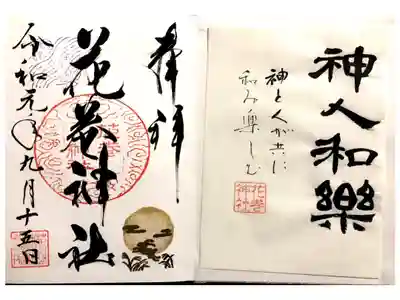 奉拝
花巻神社
令和元年九月十五日
神人和樂
神と人が共に
和み楽しむ
花巻
神社